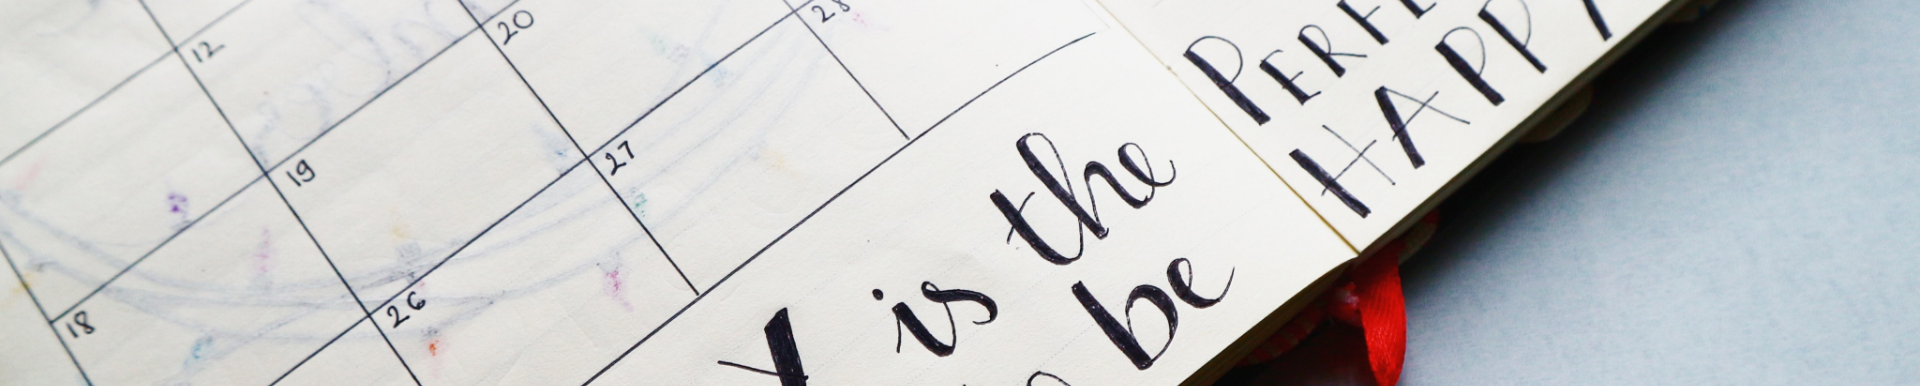 12
20
28
19
27
18
26
is the
be
HAPPY